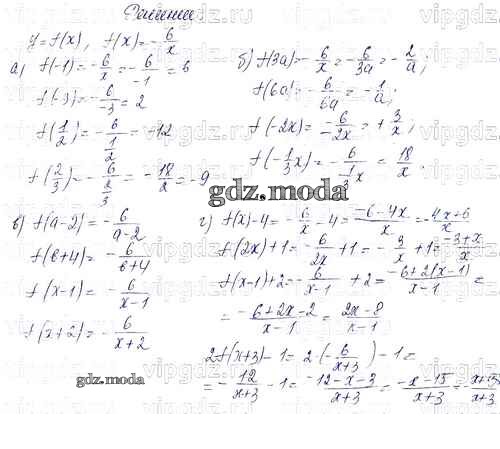 Решение:
y = f(x), f(x) = -6/x
а) f(-1) = -6/x = -6/-1 = 6
f(-3) = -6/-3 = 2
f(1/2) = -6/(1/2) = -12
f(2/3) = -6/(2/3) = -18/2 = -9
б) f(3a) = -6/x = -6/3a = -2/a;
f(6a) = -6/6a = -1/a;
f(-2x) = -6/-2x = +3/x;
f(-1/3x) = -6/(-1/3x) = 18/x.
gdz.moda
в) f(a-2) = -6/(a-2)
f(в+4) = -6/(в+4)
f(x-1) = -6/(x-1)
f(x+2) = -6/(x+2)
г) f(x)-4 = -6/x - 4 = (-6-4x)/x = -(4x+6)/x
f(2x)+1 = -6/2x + 1 = -3/x + 1 = (-3+x)/x
f(x-1)+2 = -6/(x-1) + 2 = (-6+2(x-1))/(x-1) =
= (-6+2x-2)/(x-1) = (2x-8)/(x-1)
2f(x+3)-1 = 2·(-6/(x+3)) - 1 =
= -12/(x+3) - 1 = (-12-x-3)/(x+3) = (-x-15)/(x+3) = -(x+15)/(x+3)
gdz.moda
vipgdz.ru